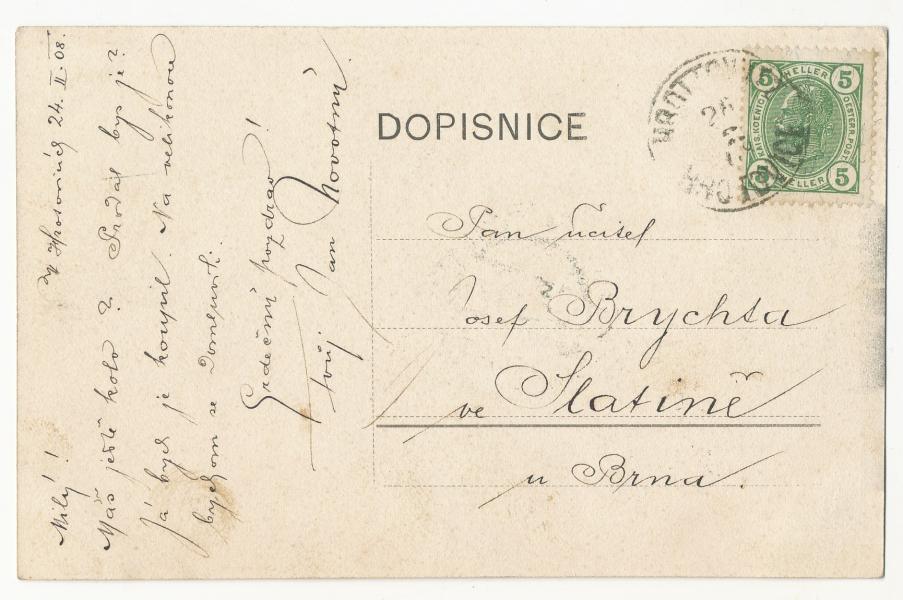 24. II. 08.
Milý!
Máš ještě kolo? Prodal bys je?
Já bych je koupil. Na velikonoce
bychom se domluvili.
Srdečný pozdrav!
tvůj Jan Novotný.
DOPISNICE
5 HELLER 5
KAIS. KOENIGL. OESTERR. POST
5 HELLER 5
Pan učitel
Josef Brychta
ve Slatině
u Brna.